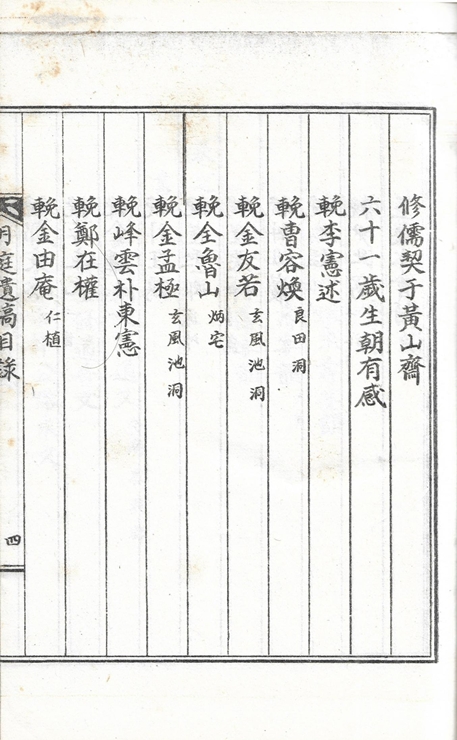 修儒契于黃山齋
六十一歲生朝有感
輓李憲述
輓曺容煥 良田洞
輓金友若 玄風池洞
輓全魯山 炳宅
輓金孟極 玄風池洞
輓峰雲朴東憲
輓鄭在權
輓金由庵 仁植
庭遺稿目錄
四